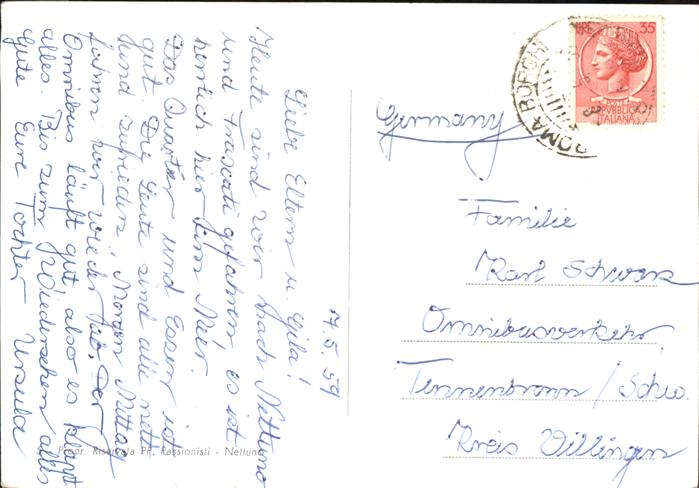 17.5.59
Liebe Eltern u. Gila!
Heute sind wir nach Nettuno
und Frascati gefahren es ist
herrlich hier am Meer.
Das Quartier und Essen ist
gut. Die Leute sind alle nett
und zufrieden. Morgen Mittag
fahren wir wieder ab. Der
Omnibus läuft gut, also es klappt
alles. Bis zum Wiedersehen alles
Gute Eure Tochter Ursula
Propr. Riservata PP. Passionisti - Nettuno
35
POSTE
REPVBBLICA
ITALIANA
ROMA BORGHI
Germany
Familie
Karl Schwarz
Omnibusverkehr
Tennenbronn / Schw.
Kreis Villingen